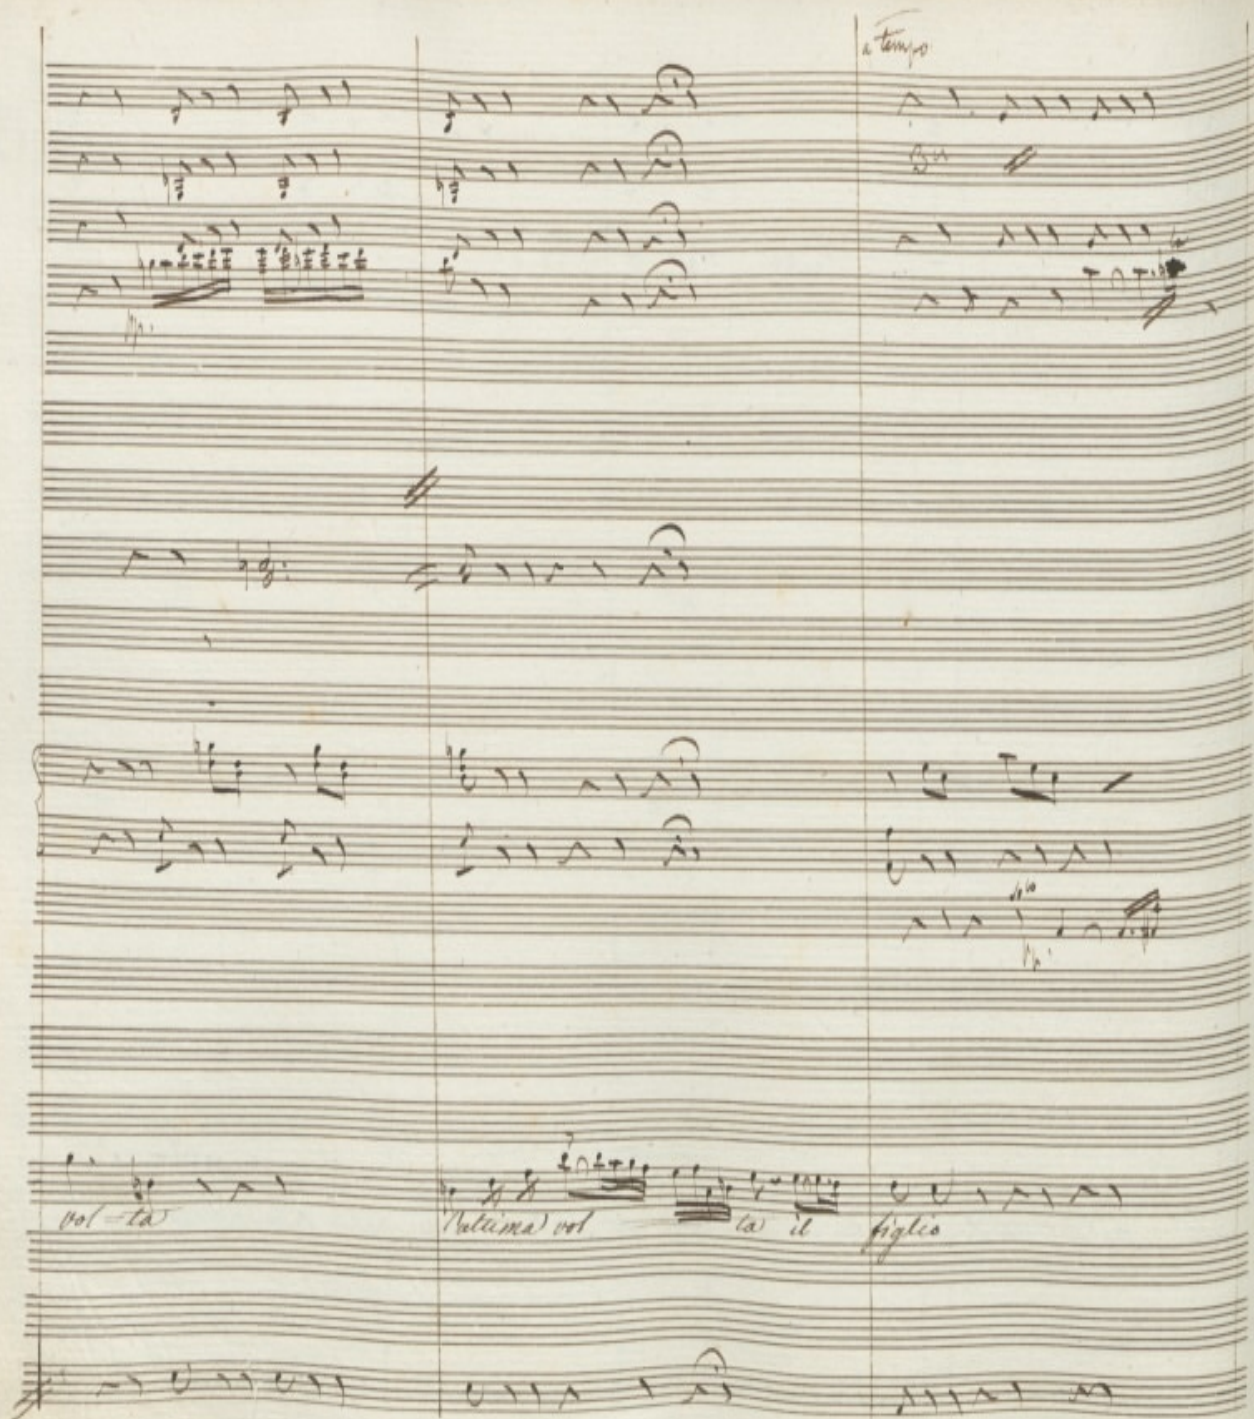 a tempo
pp.
solo
pp.
vol - ta l'ultima vol ta il figlio